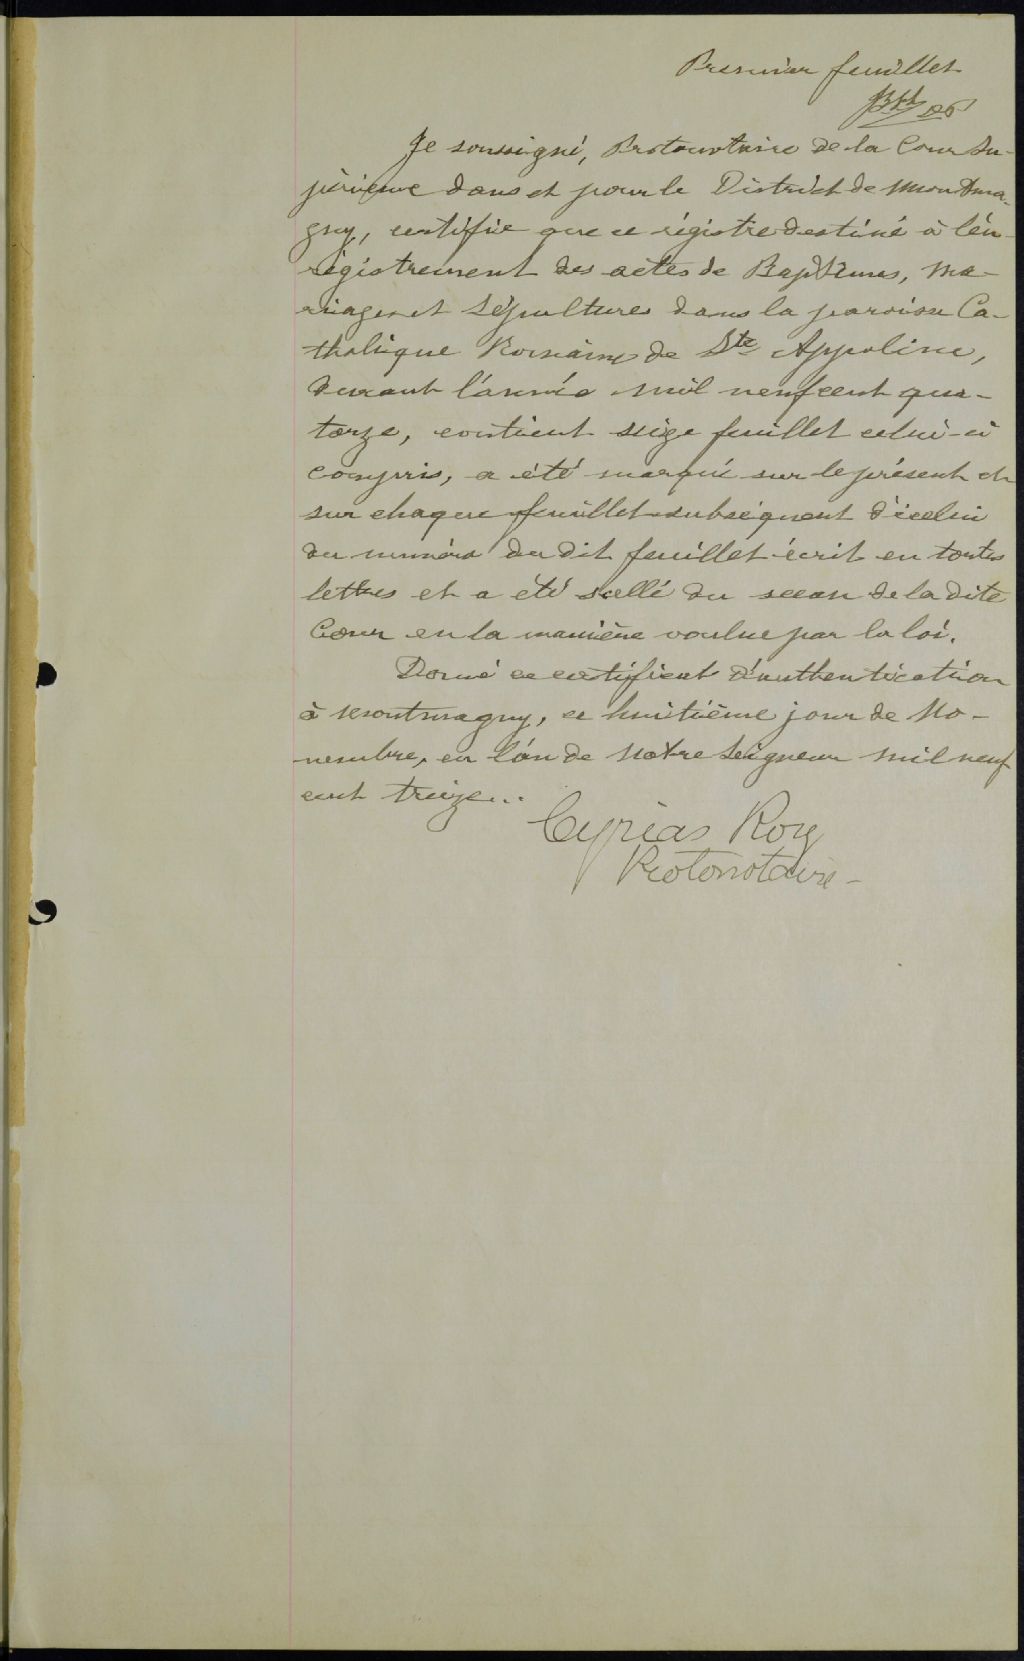 Premier feuillet
Je soussigné, Protonotaire de la Cour Su-
périeure dans et pour le District de Montma-
gny, certifie que ce régistre destiné à l'én-
régistrement des actes de Baptêmes, Ma-
riages et Sépultures dans la paroisse Ca-
tholique Romaine de Ste Appoline,
durant l'année mil neuf cent qua-
torze, contient seize feuillet celui-ci
compris, a été marqué sur le présent et
sur chaque feuillet subséquent d'icelui
du numéro du dit feuillet écrit en toutes
lettres et a été scellé du sceau de la dite
Cour en la manière voulue par la loi.
Donné ce certificat d'authentication
à Montmagny, ce huitième jour de No-
vembre, en l'an de Notre Seigneur mil neuf
cent treize...
Cyprias Roy
Protonotaire -